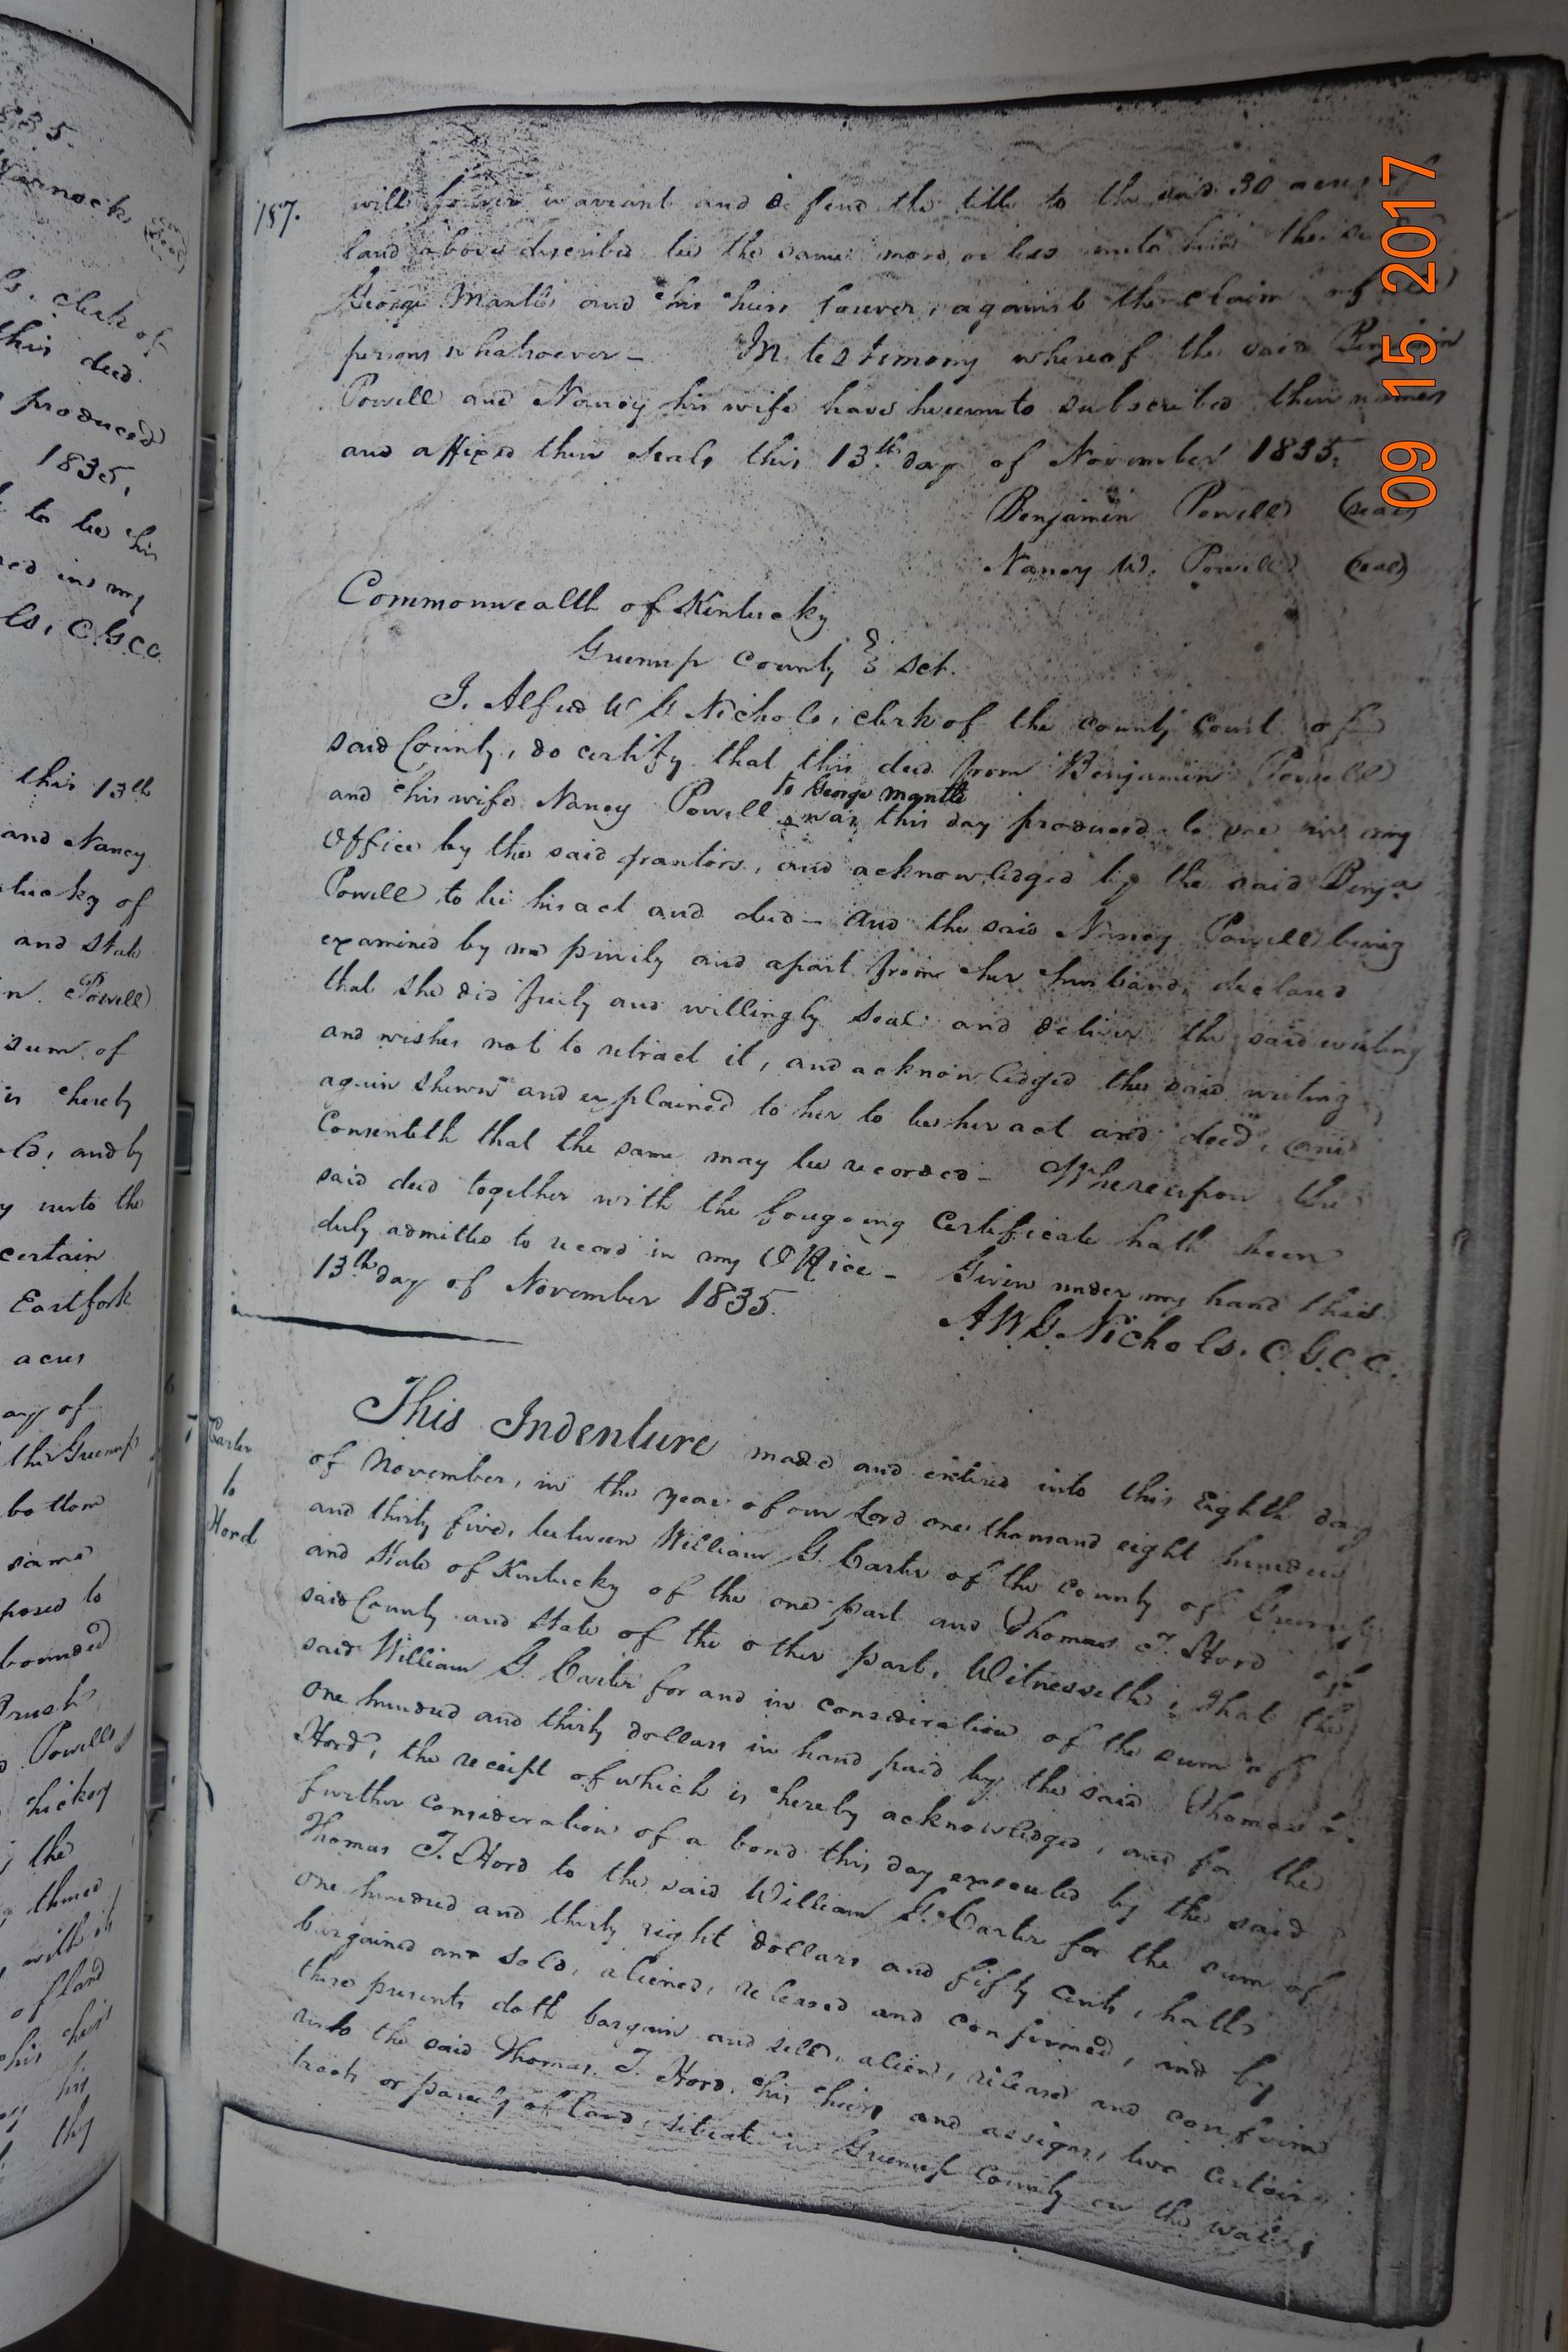 835.
Warnock (Seal)
ls. clerk of
this deed.
produced
1835,
to be his
ed in my
ls, C.G.C.C.
this 13th
and Nancy
tucky of
and State
n. Powell
sum of
is hereby
ld, and by
y unto the
certain
East fork
acres
ay of
the Greenup
bottom
same
posed to
bounded
Brush
Powells
hickory
the
thence
with it
of land
his heirs
his
they
157.
will forever warrant and defend the title to the said 30 acres of
land above described be the same more or less unto him the said
George Mantle and his heirs forever, against the claim of all
persons whatsoever – In testimony whereof the said Benjamin
Powell and Nancy his wife have hereunto subscribed their names
and affixed their seals this 13th day of November 1835.
Benjamin Powell (seal)
Nancy W. Powell (seal)
Commonwealth of Kentucky
Greenup County } sct.
I. Alfred W G Nichols, clerk of the county Court of
said County, do certify that this deed from Benjamin Powell
to George Mantle
and his wife Nancy Powell ^ was this day produced to me in my
Office by the said grantors, and acknowledged by the said Benja
Powell to be his act and deed – and the said Nancy Powell being
examined by me privily and apart from her husband, declared
that she did freely and willingly seal and deliver the said writing
and wishes not to retract it, and acknowledged the said writing
again shewn and explained to her to be her act and deed, and
Consenteth that the same may be recorded – Whereupon the
said deed together with the foregoing Certificate hath been
duly admitted to record in my Office – Given under my hand this
13th day of November 1835.
A W G. Nichols. C.G.C.C.
Carter
to
Hord
This Indenture made and entered into this Eighth day
of November, in the year of our Lord one thousand eight hundred
and thirty five, between William G. Carter of the County of Greenup
and State of Kentucky of the one part and Thomas T. Hord of
said County and State of the other part, Witnesseth; That the
said William G. Carter for and in consideration of the sum of
one hundred and thirty dollars in hand paid by the said Thomas T.
Hord, the receipt of which is hereby acknowledged, and for the
further consideration of a bond this day executed by the said
Thomas T. Hord to the said William G. Carter for the sum of
one hundred and thirty eight dollars and fifty cents, hath
bargained and sold, aliened, released and confirmed, and by
these presents doth bargain and sell, alien, release and confirm
unto the said Thomas T. Hord, his heirs and assigns, two certain
tracts or parcels of land, situate in Greenup County on the waters
09 15 2017